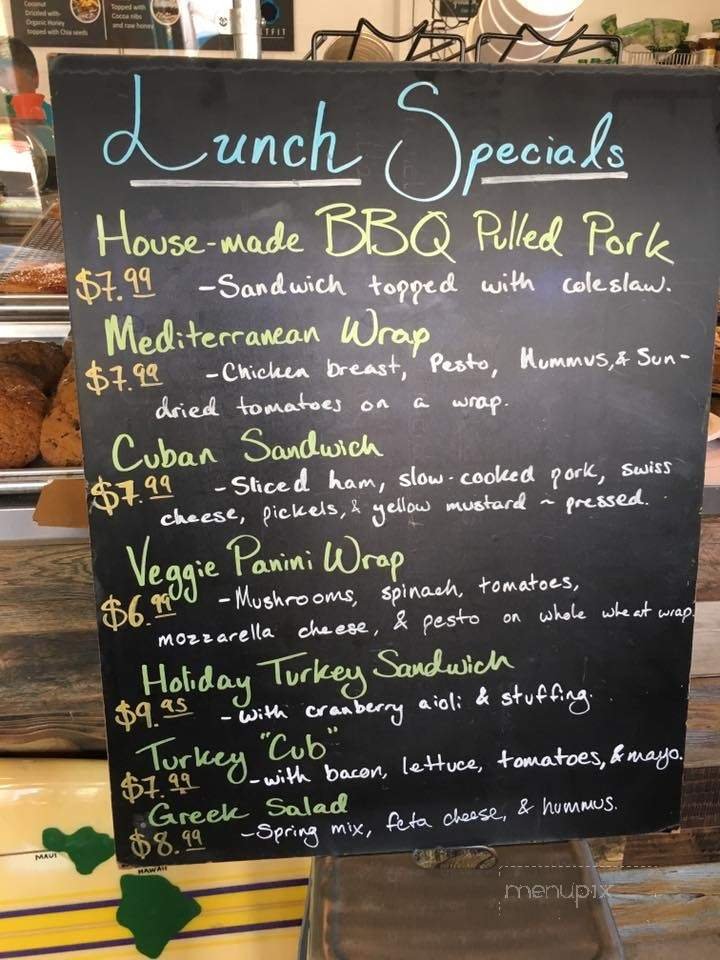 Coconut
Drizzled with-
Organic Honey
topped with Chia seeds
Topped with
Cocoa nibs
and raw honey
Lunch Specials
House-made BBQ Pulled Pork
$7.99 -Sandwich topped with coleslaw.
Mediterranean Wrap
$7.99 -Chicken breast, Pesto, Hummus, & Sun-
dried tomatoes on a wrap.
Cuban Sandwich
$7.99 -Sliced ham, slow-cooked pork, swiss
cheese, pickels, & yellow mustard ~ pressed.
Veggie Panini Wrap
$6.99 -Mushrooms, spinach, tomatoes,
mozzarella cheese, & pesto on whole wheat wrap
Holiday Turkey Sandwich
$9.95 -with cranberry aioli & stuffing.
Turkey "Cub"
$7.99 -with bacon, lettuce, tomatoes, & mayo.
Greek Salad
$8.99 -Spring mix, feta cheese, & hummus.
MAUI
HAWAII
menupix